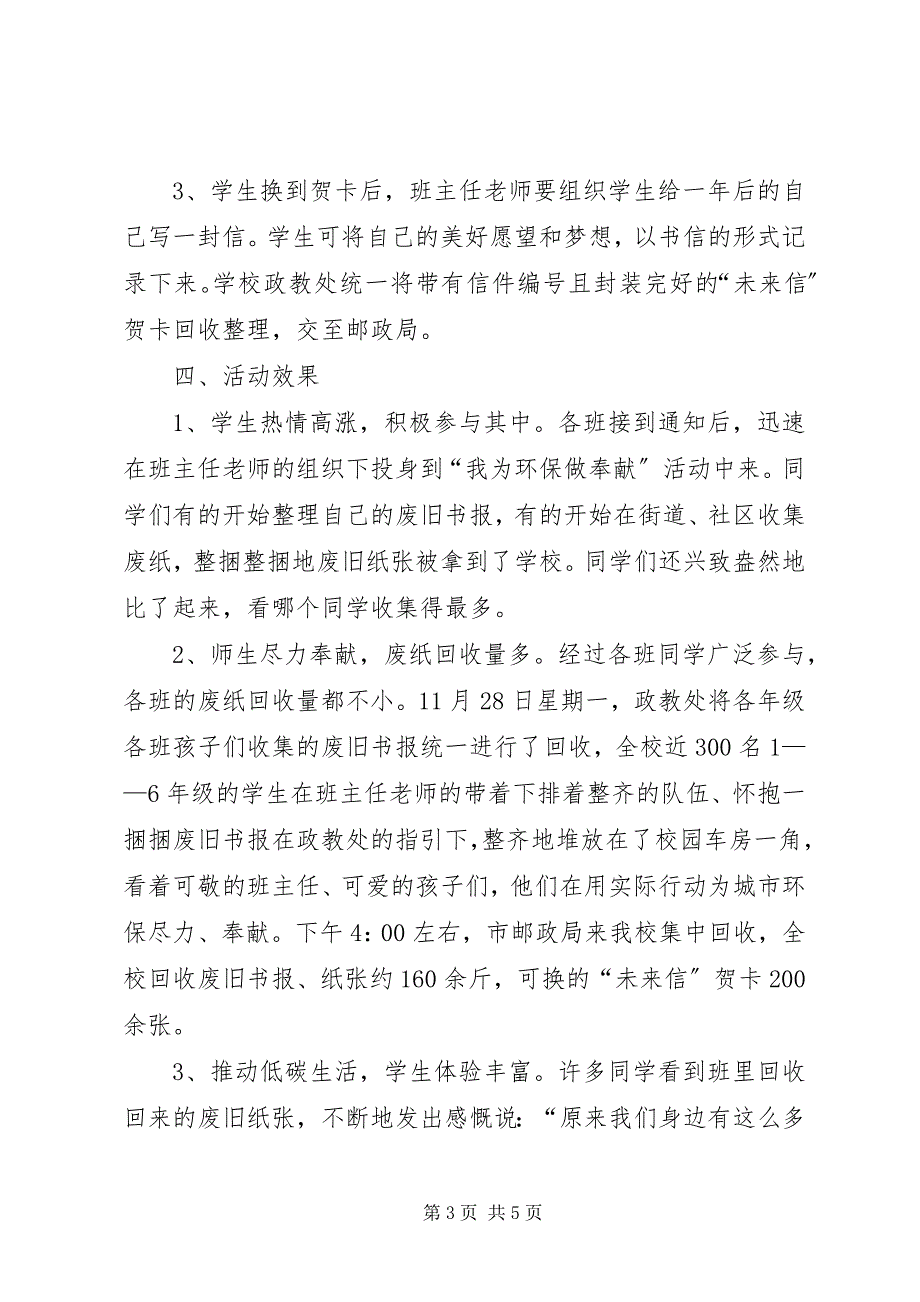 3、学生换到贺卡后，班主任老师要组织学生给一年后的自
己写一封信。学生可将自己的美好愿望和梦想，以书信的形式记
录下来。学校政教处统一将带有信件编号且封装完好的“未来信〞
贺卡回收整理，交至邮政局。
四、活动效果
1、学生热情高涨，积极参与其中。各班接到通知后，迅速
在班主任老师的组织下投身到“我为环保做奉献〞活动中来。同
学们有的开始整理自己的废旧书报，有的开始在街道、社区收集
废纸，整捆整捆地废旧纸张被拿到了学校。同学们还兴致盎然地
比了起来，看哪个同学收集得最多。
2、师生尽力奉献，废纸回收量多。经过各班同学广泛参与，
各班的废纸回收量都不小。11 月 28 日星期一，政教处将各年级
各班孩子们收集的废旧书报统一进行了回收，全校近 300 名 1—
—6 年级的学生在班主任老师的带着下排着整齐的队伍、怀抱一
捆捆废旧书报在政教处的指引下，整齐地堆放在了校园车房一角，
看着可敬的班主任、可爱的孩子们，他们在用实际行动为城市环
保尽力、奉献。下午 4：00 左右，市邮政局来我校集中回收，全
校回收废旧书报、纸张约 160 余斤，可换的“未来信〞贺卡 200
余张。
3、推动低碳生活，学生体验丰富。许多同学看到班里回收
回来的废旧纸张，不断地发出感慨说：“原来我们身边有这么多
第 3 页 共 5 页